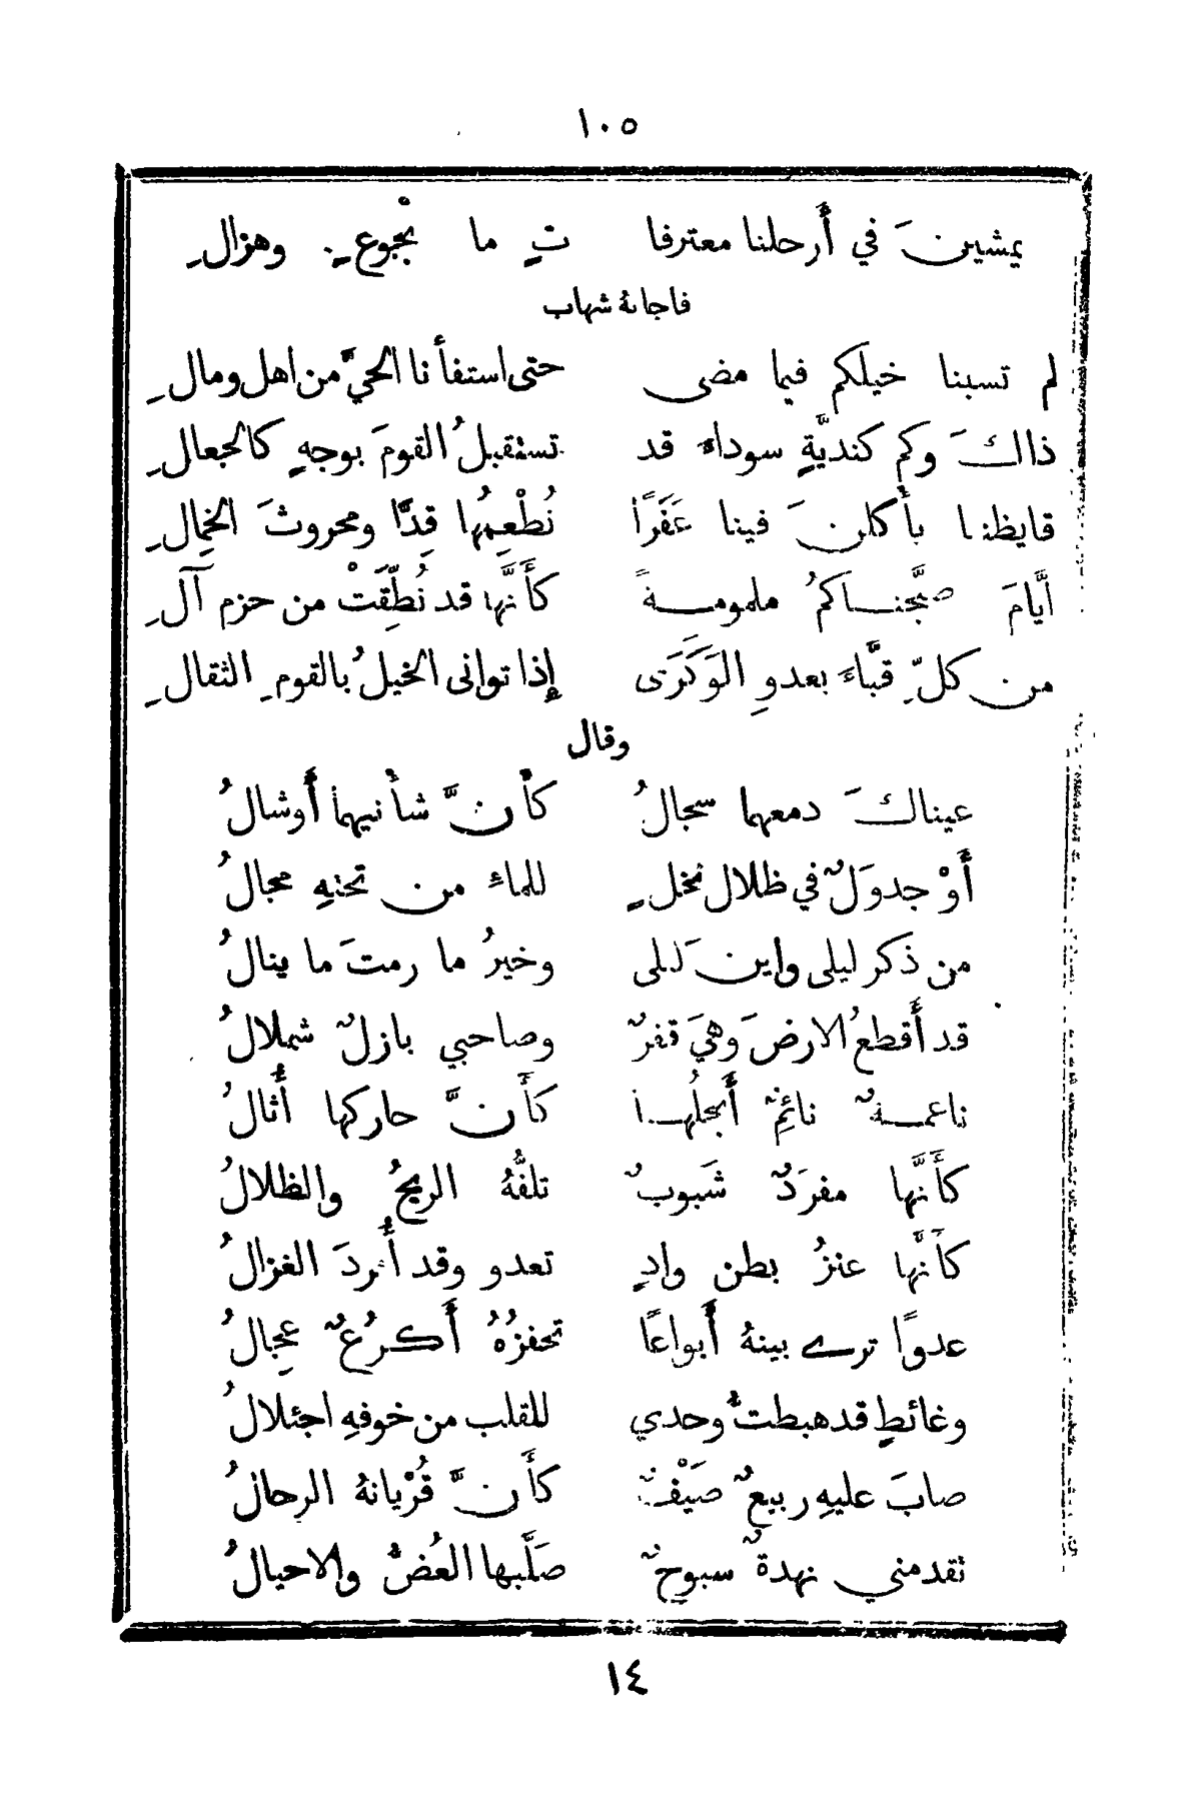 ١٠٥
يمشينَ في أَرحلنا معترفا تٍ ما بْجوعٍ وهزالِ
فاجابهُ شهاب
لم تسبنا خيلكم فيما مضى حتى استفأنا الحيَّ من اهل ومالِ
ذاكَ وكم كنديَّةٍ سوداء قد تستقبلُ القومَ بوجهٍ كالجعالِ
قايظننا يأكلنَ فينا عَفَرًا نُطْعِمُها قِدًّا ومحروثَ الخِمالِ
أيَّامَ صبَّحناكمُ ملمومةً كأَنَّها قد نُطِّقَتْ من حزم آلِ
من كلِّ قبَّاءَ بعدوِ الوَكَرَى إذا توانى الخيلُ بالقومِ الثقالِ
وقال
عيناكَ دمعهما سجالُ كأنَّ شأنيهما أَوشالُ
أَوْ جدوَلٌ في ظلال نخلٍ للماء من تحتهِ مجالُ
من ذكر ليلى واينَ ليلى وخيرُ ما رمتَ ما ينالُ
قد أَقطعُ الارضَ وهيَ قفرٌ وصاحبي بازلٌ شملالُ
ناعمةٌ نائِمٌ أَبجلُها كأَنَّ حاركها أُثالُ
كأَنَّها مفرَدٌ شَبوبٌ تلفُّهُ الريحُ والظلالُ
كأَنَّها عنزُ بطن وادٍ تعدو وقد أُفردَ الغزالُ
عدوًا ترى بينهُ أَبواعًا تحفزُهُ أَكرُعٌ عِجالُ
وغائطٍ قد هبطتُ وحدي للقلب من خوفهِ اجئلالُ
صابَ عليهِ ربيعٌ صَيْفٌ كأَنَّ قُرْيانهُ الرحالُ
تقدمني نهدةٌ سبوحٌ صَلَّبها العُضُّ والاحيالُ
١٤